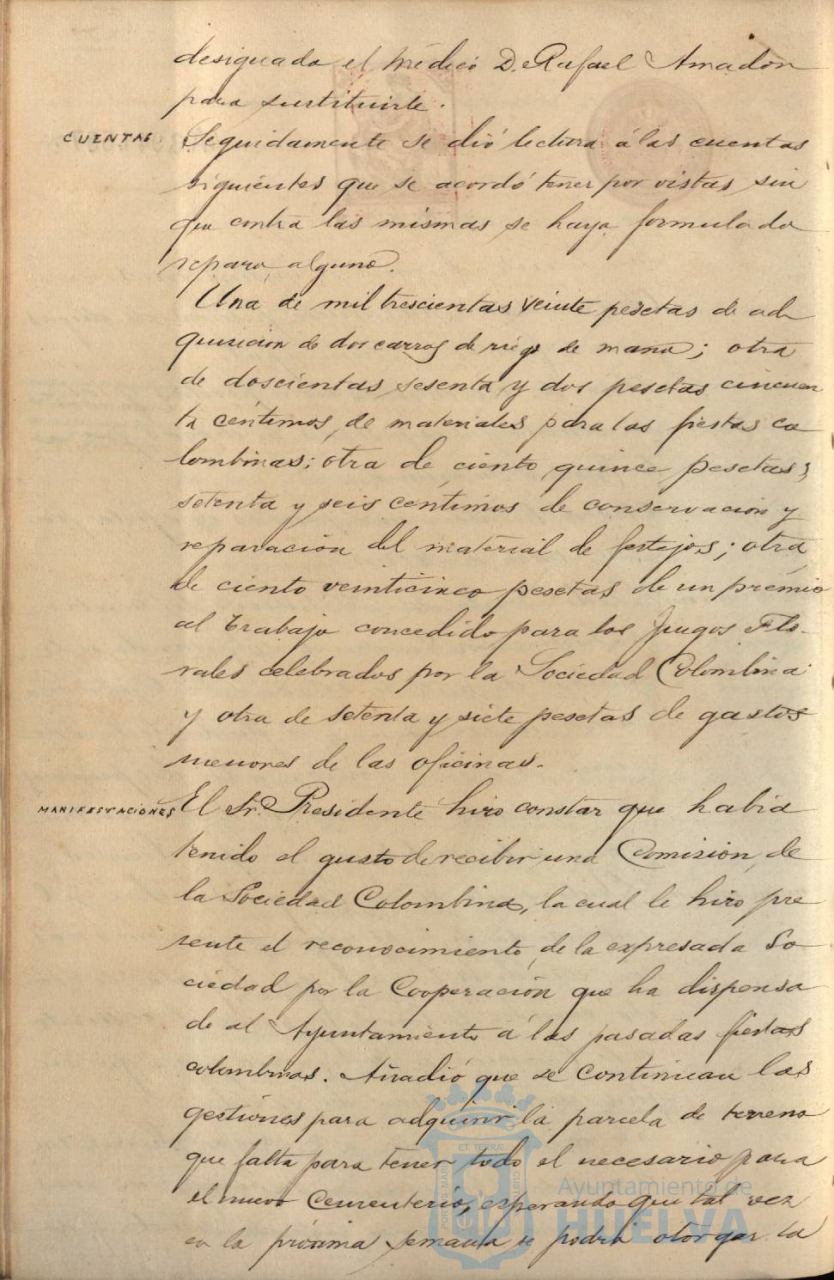 designado el médico D. Rafael Amador
para sustituirle.
CUENTAS. Seguidamente se dió lectura á las cuentas
siguientes que se acordó tener por vistas sin
que contra las mismas se haya formulado
reparo alguno.
Una de mil trescientas veinte pesetas de ad
quisicion de dos carros de riego de mano; otra
de doscientas sesenta y dos pesetas cincuen
ta céntimos, de materiales para las fiestas co
lombinas; otra de ciento quince pesetas,
setenta y seis céntimos de conservación y
reparación del material de festejos; otra
de ciento veinticinco pesetas de un premio
al trabajo concedido para los Juegos Flo-
rales celebrados por la Sociedad Colombina
y otra de setenta y siete pesetas de gastos
menores de las oficinas.
MANIFESTACIONES El Sr. Presidente hizo constar que habia
tenido el gusto de recibir una Comisión, de
la Sociedad Colombina, la cual le hizo pre
sente el reconocimiento, de la expresada So-
ciedad por la Cooperación que ha dispensa
do al Ayuntamiento á las pasadas fiestas
colombinas. Añadió que se continuan las
gestiones para adquirir la parcela de terreno
que falta para tener todo el necesario para
el nuevo Cementerio, esperando que tal vez
en la próxima semana se podrá otorgar la
ET TERRAE
Ayuntamiento de
HUELVA